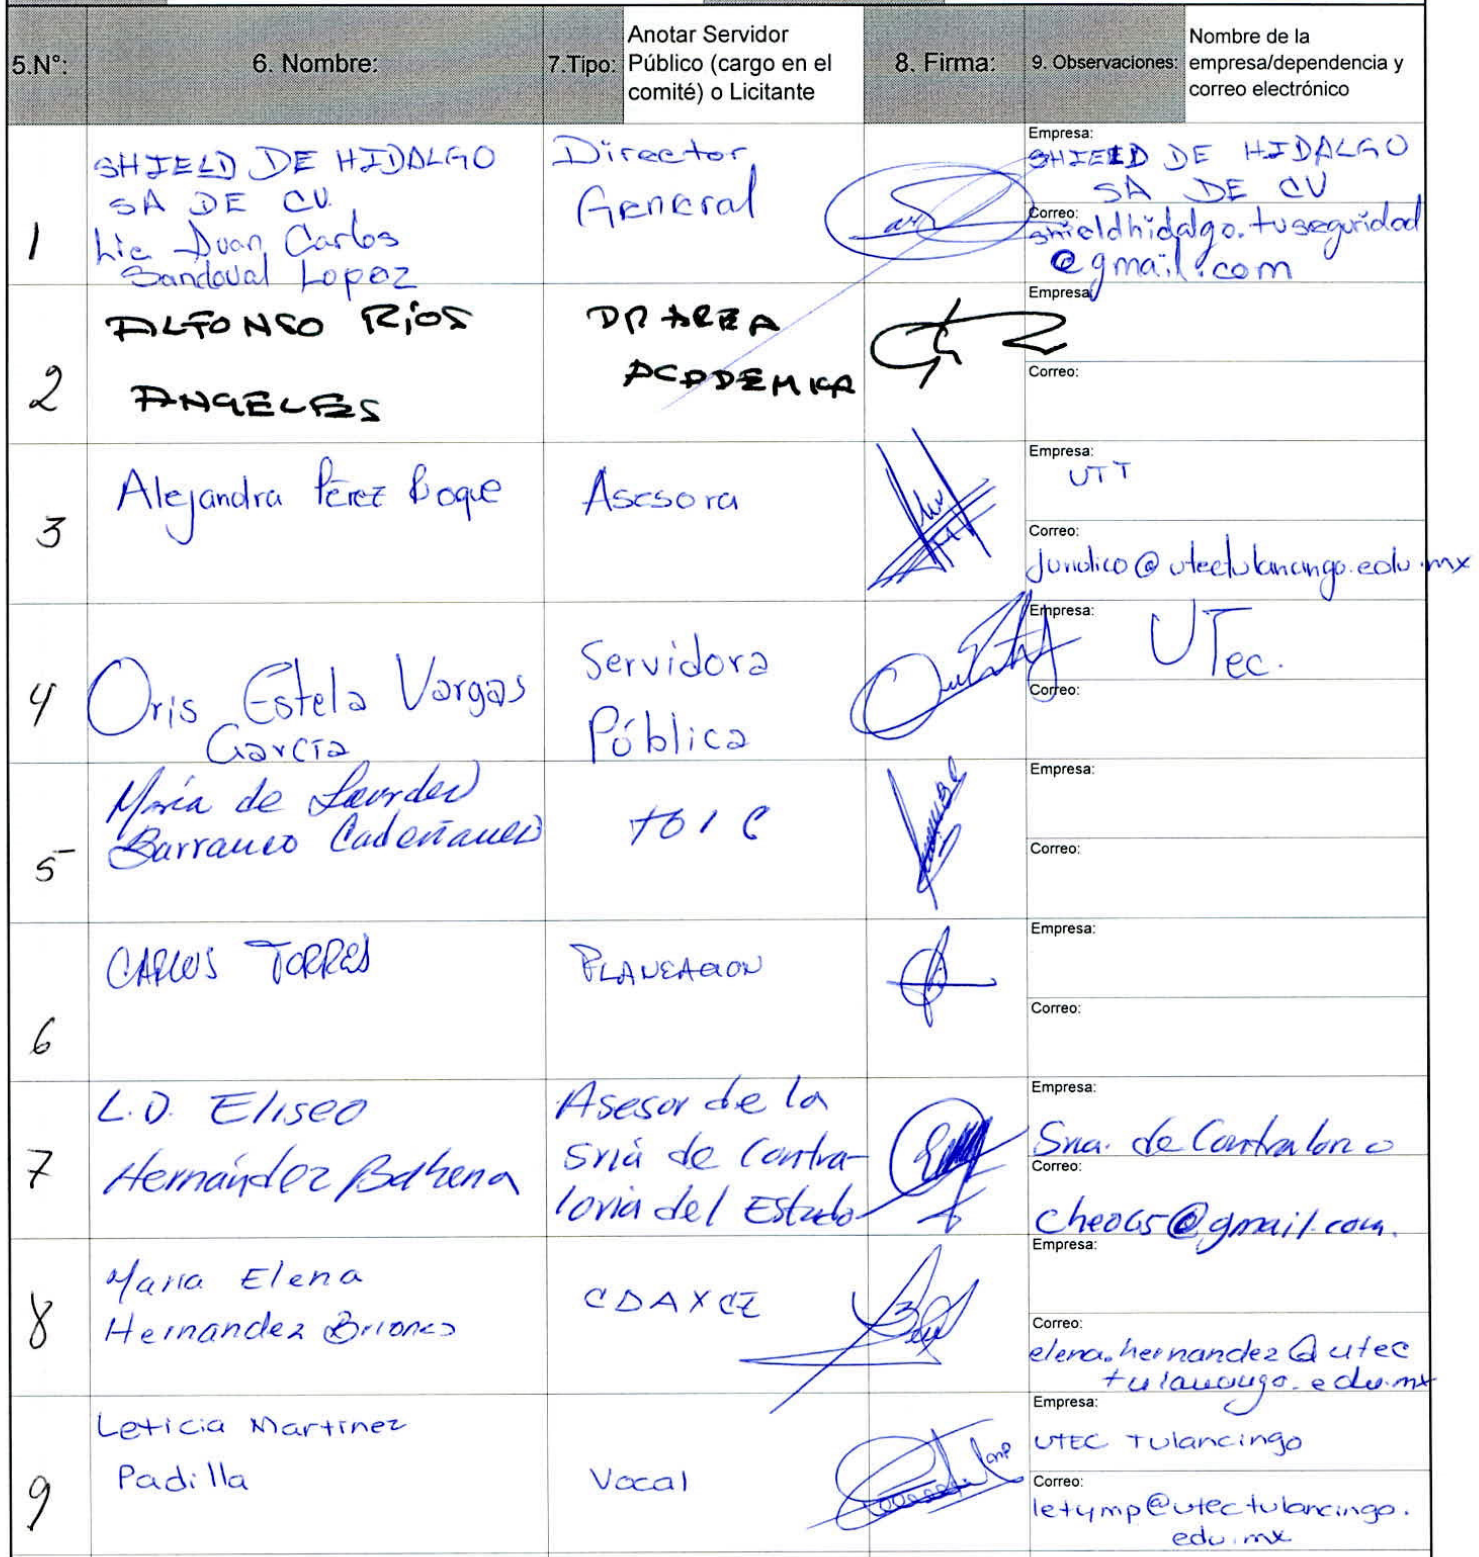 5.N°:
6. Nombre:
7.Tipo:
Anotar Servidor
Público (cargo en el
comité) o Licitante
8. Firma:
9. Observaciones:
Nombre de la
empresa/dependencia y
correo electrónico
1
SHIELD DE HIDALGO
SA DE CV.
Lic Juan Carlos
Sandoval Lopez
Director
General
Empresa:
SHIELD DE HIDALGO
SA DE CV
Correo:
shieldhidalgo.tuseguridad
@gmail.com
2
ALFONSO RíOS
ANGELES
DR AREA
ACADEMICA
Empresa:
Correo:
3
Alejandra Pérez Roque
Asesora
Empresa:
UTT
Correo:
juridico@utectulancingo.edu.mx
4
Oris Estela Vargas
García
Servidora
Pública
Empresa:
UTec.
Correo:
5
María de Lourdes
Barranco
TOIC
Empresa:
Correo:
6
CARLOS TORRES
PLANEACION
Empresa:
Correo:
7
L.D. Eliseo
Hernández Bahena
Asesor de la
Sría de Contra-
loria del Estado
Empresa:
Sria. de Contraloria
Correo:
cheo65@gmail.com.
8
Maria Elena
Hernandez Briones
Empresa:
Correo:
elena.hernandez@utec
tulancingo.edu.mx
9
Leticia Martinez
Padilla
Vocal
Empresa:
UTEC Tulancingo
Correo:
letymp@utectulancingo.
edu.mx